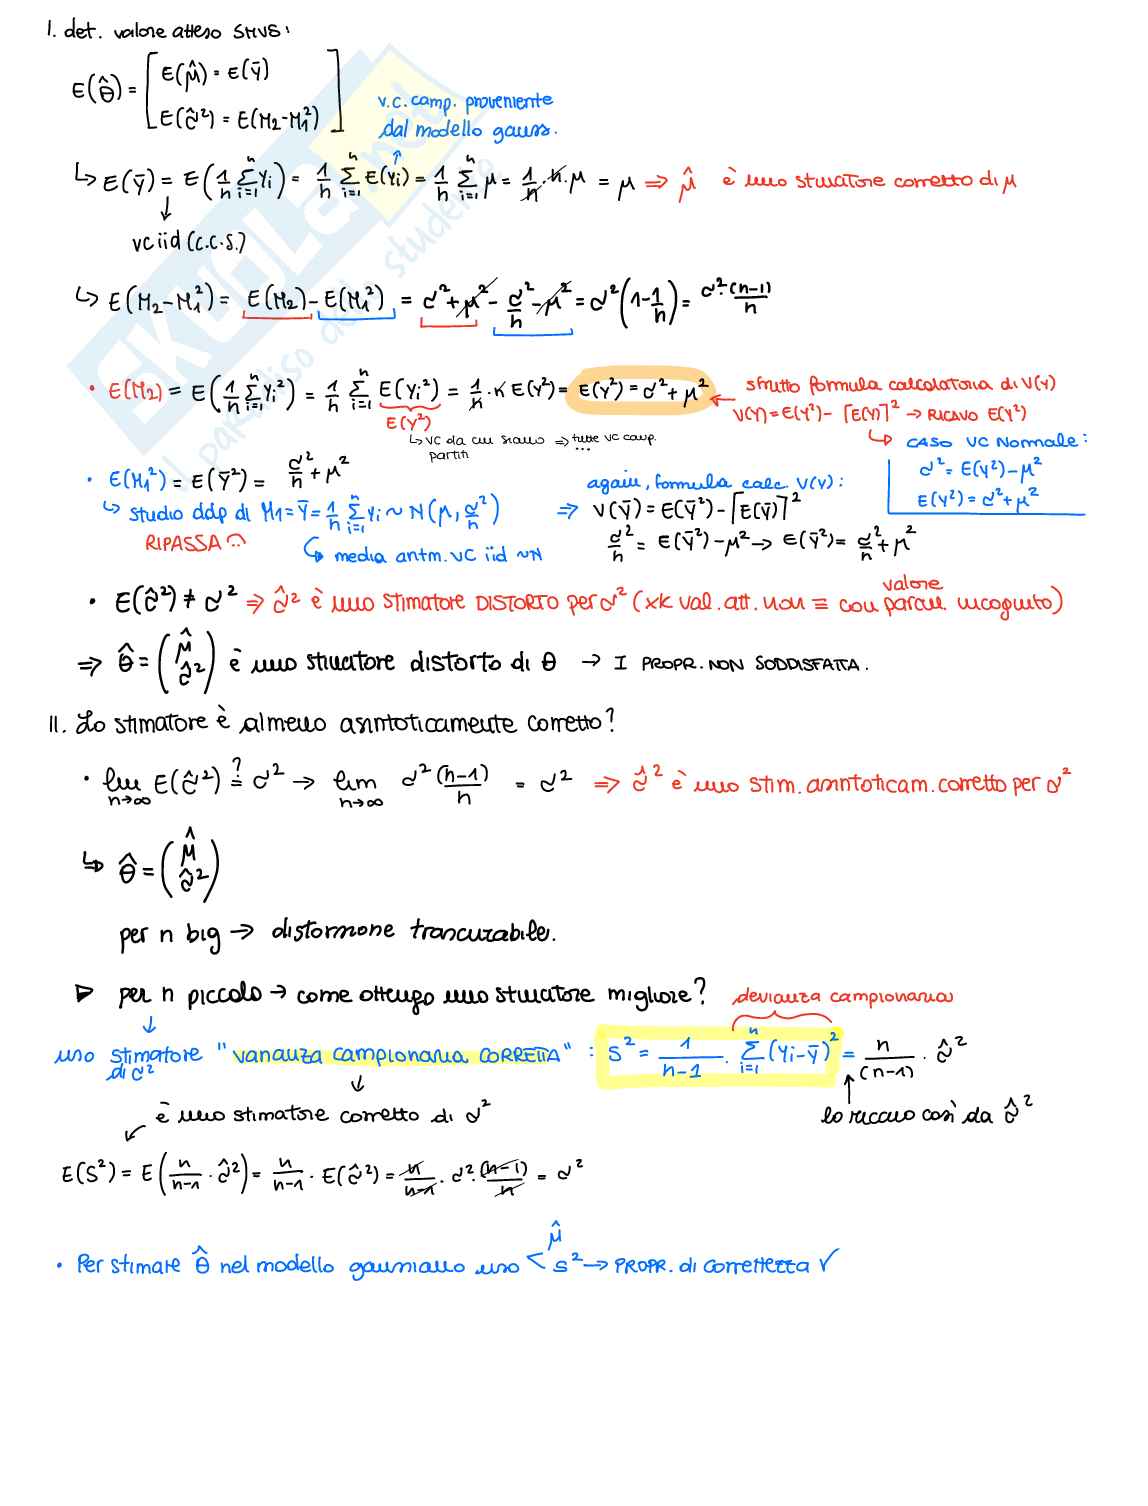 I. det. valore atteso SMVS:
E(θ̂) = [ E(μ̂) = E(ȳ)
E(σ̂²) = E(M₂-M₁²) ]
v.c. camp. proveniente
dal modello gauss.
↳ E(ȳ) = E(1/n Σᵢ₌₁ⁿ Yi) = 1/n Σᵢ₌₁ⁿ E(Yi) = 1/n Σᵢ₌₁ⁿ μ = 1/n · n · μ = μ ⇒ μ̂ è uno stimatore corretto di μ
↓
vc iid (c.c.s.)
↳ E(M₂-M₁²) = E(M₂) - E(M₁²) = σ² + μ² - σ²/n - μ² = σ²(1 - 1/n) = σ²·(n-1)/n
• E(M₂) = E(1/n Σᵢ₌₁ⁿ Yi²) = 1/n Σᵢ₌₁ⁿ E(Yi²) = 1/n · n E(Y²) = E(Y²) = σ² + μ² ← sfrutto formula calcolatoria di V(Y)
E(Y²)
V(Y) = E(Y²) - [E(Y)]² → RICAVO E(Y²)
↳ VC da cui siamo partiti ⇒ tutte VC camp. ...
↳ CASO VC NORMALE:
σ² = E(Y²) - μ²
E(Y²) = σ² + μ²
• E(M₁²) = E(ȳ²) = σ²/n + μ²
again, formula calc. V(Y):
↳ studio ddp di M₁ = ȳ = 1/n Σᵢ₌₁ⁿ Yi ~ N(μ, σ²/n)
⇒ V(ȳ) = E(ȳ²) - [E(ȳ)]²
RIPASSA
↳ media aritm. VC iid ~N
σ²/n = E(ȳ²) - μ² → E(ȳ²) = σ²/n + μ²
• E(σ̂²) ≠ σ² ⇒ σ̂² è uno stimatore DISTORTO per σ² (xk val. att. non ≡ con valore param. incognito)
⇒ θ̂ = (μ̂ σ̂²) è uno stimatore distorto di θ → I PROPR. NON SODDISFATTA.
II. Lo stimatore è almeno asintoticamente corretto?
• lim n→∞ E(σ̂²) ?= σ² → lim n→∞ σ² (n-1)/n = σ² ⇒ σ̂² è uno stim. asintoticam. corretto per σ²
↳ θ̂ = (μ̂ σ̂²)
per n big → distorsione trascurabile.
▷ per n piccolo → come ottengo uno stimatore migliore?
devianza campionaria
↓
uso stimatore di σ² "varianza campionaria CORRETTA" : S² = 1/n-1 · Σᵢ₌₁ⁿ (Yi-ȳ)² = n/(n-1) · σ̂²
↓
è uno stimatore corretto di σ²
lo ricavo così da σ̂²
E(S²) = E(n/n-1 · σ̂²) = n/n-1 · E(σ̂²) = n/n-1 · σ²·(n-1)/n = σ²
• Per stimare θ̂ nel modello gaussiano uso < μ̂ S² → PROPR. di correttezza ✓
SKUOLA.net
il paradiso dello studente